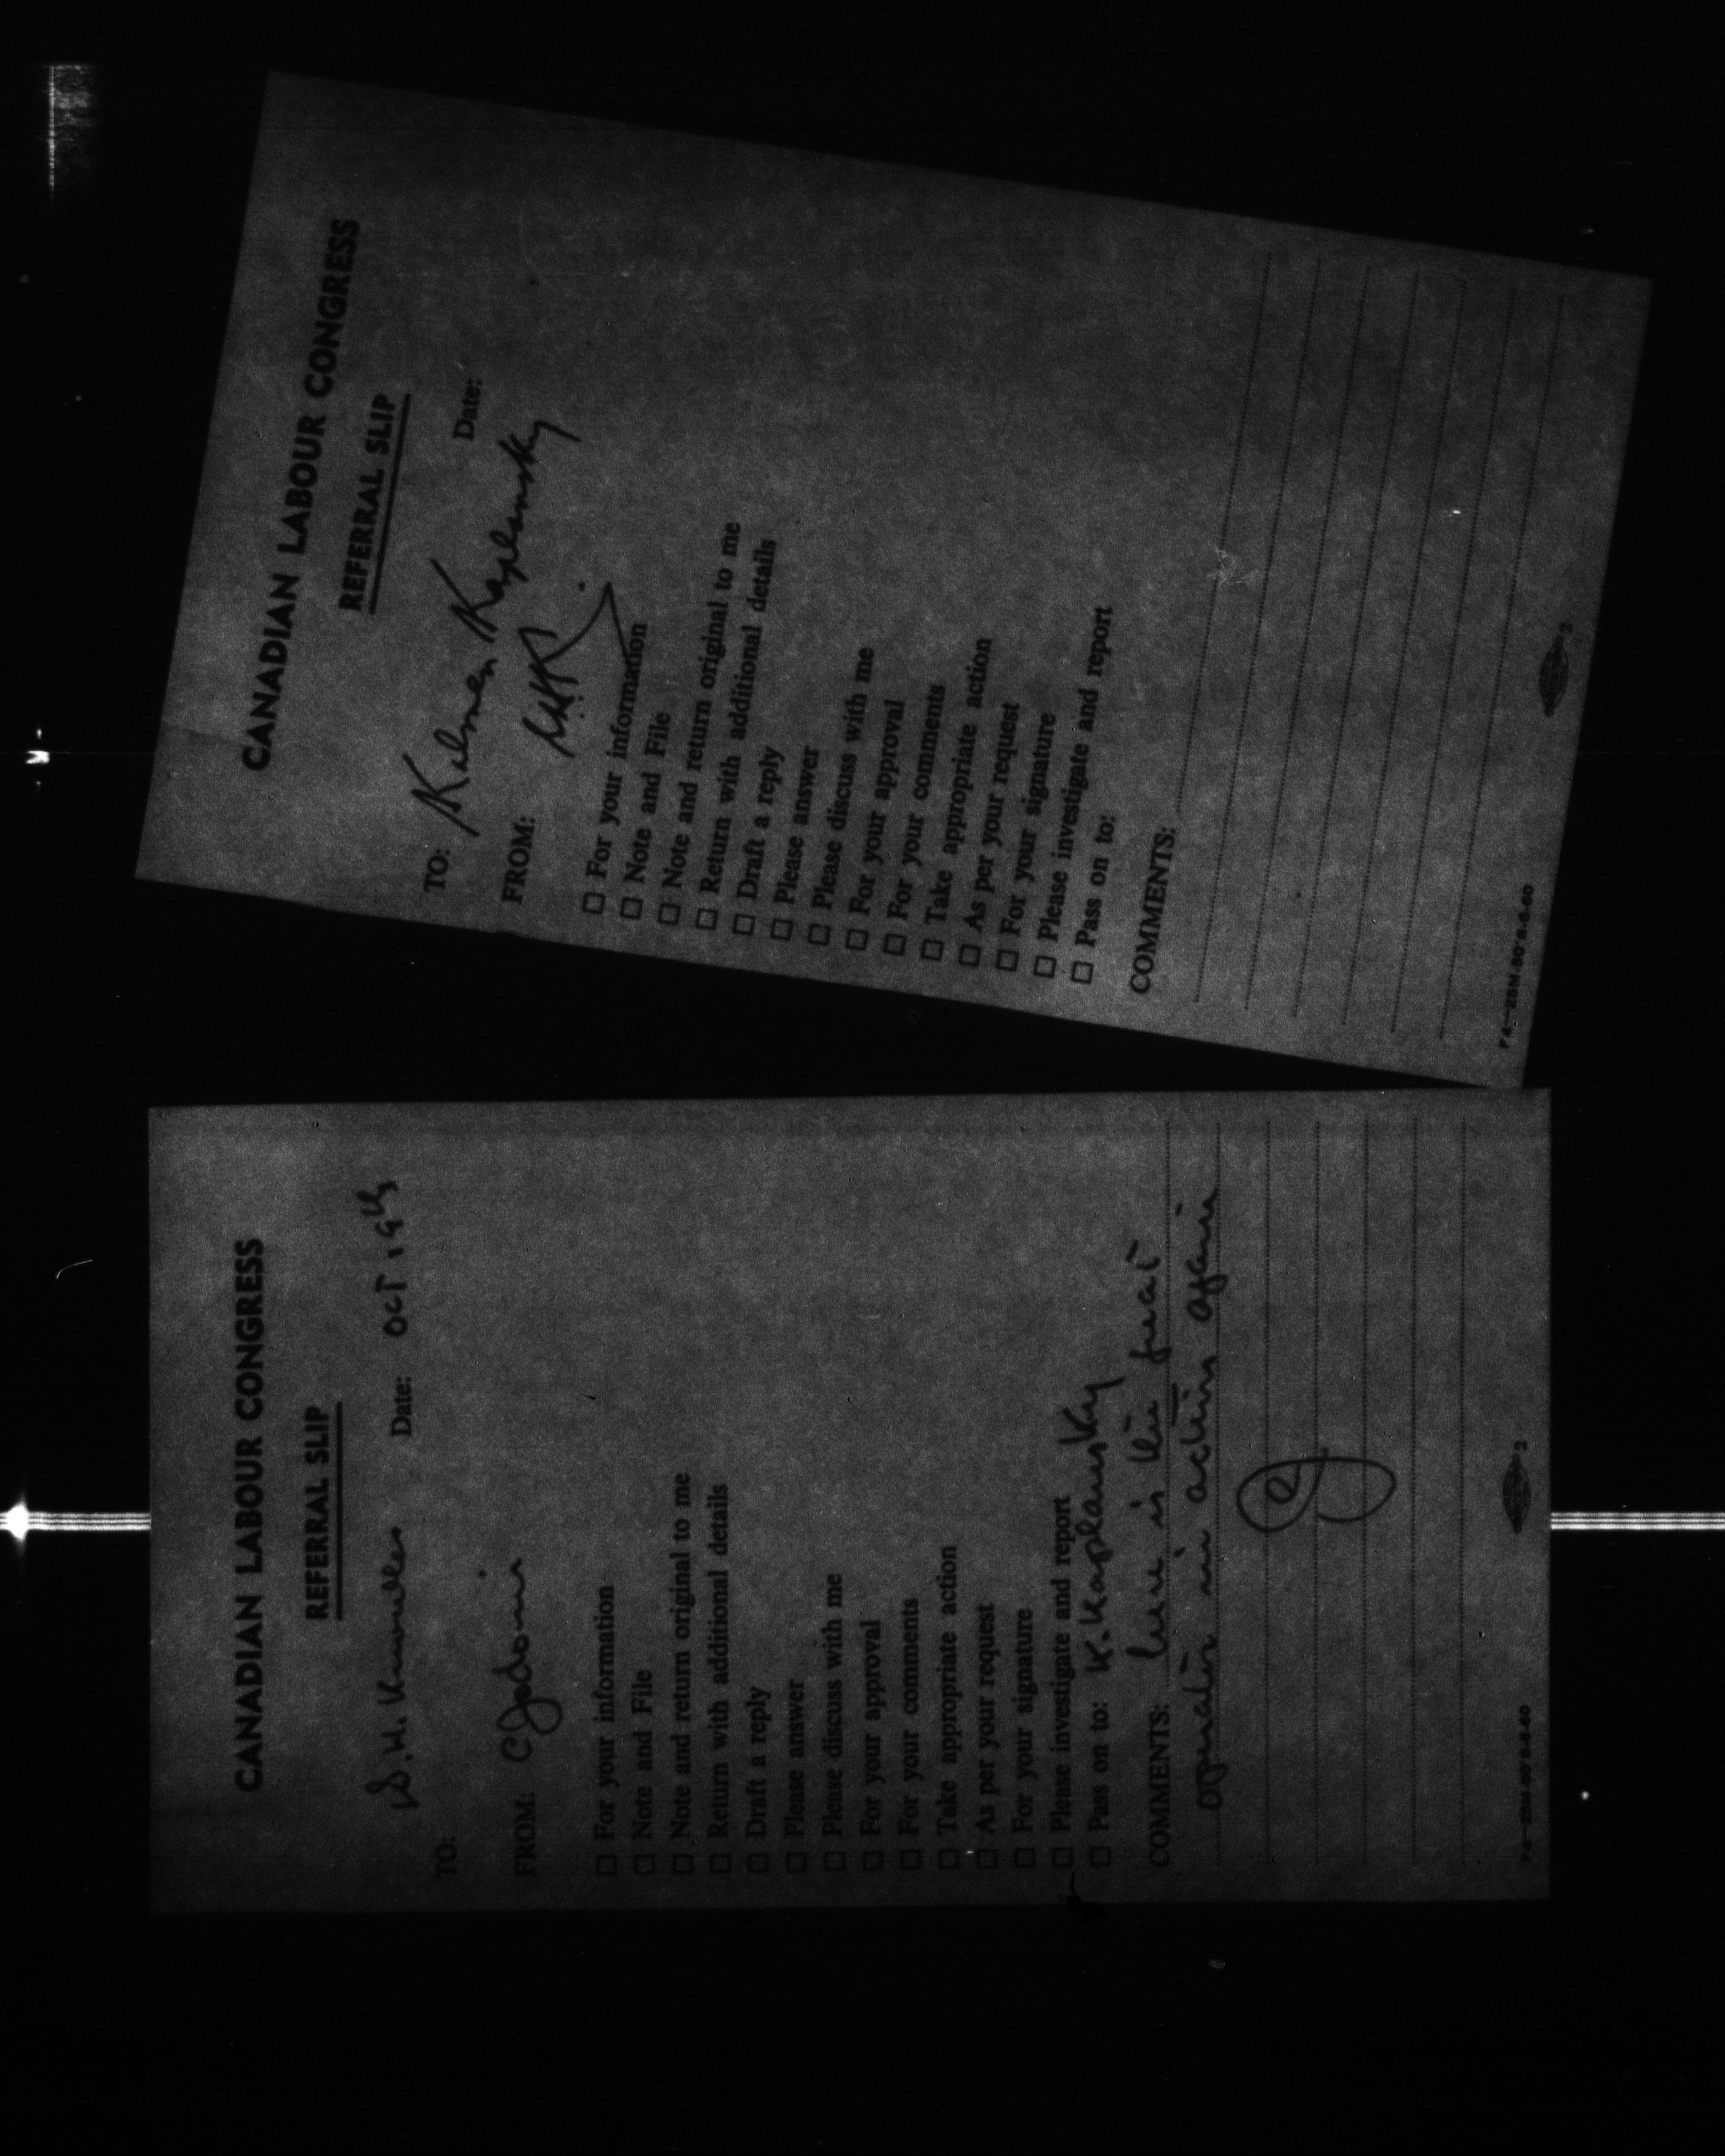 CANADIAN LABOUR CONGRESS
REFERRAL SLIP
Date: OCT 19th
TO:
FROM: CJodoin
☐ For your information
☐ Note and File
☐ Note and return original to me
☐ Return with additional details
☐ Draft a reply
☐ Please answer
☐ Please discuss with me
☐ For your approval
☐ For your comments
☐ Take appropriate action
☐ As per your request
☐ For your signature
☐ Please investigate and report
☐ Pass on to: K. Kaplansky
COMMENTS: here is this great
operator in action again
CJ
2
CANADIAN LABOUR CONGRESS
REFERRAL SLIP
Date:
TO: Kalmen Kaplansky
FROM:
☐ For your information
☐ Note and File
☐ Note and return original to me
☐ Return with additional details
☐ Draft a reply
☐ Please answer
☐ Please discuss with me
☐ For your approval
☐ For your comments
☐ Take appropriate action
☐ As per your request
☐ For your signature
☐ Please investigate and report
☐ Pass on to:
COMMENTS:
2